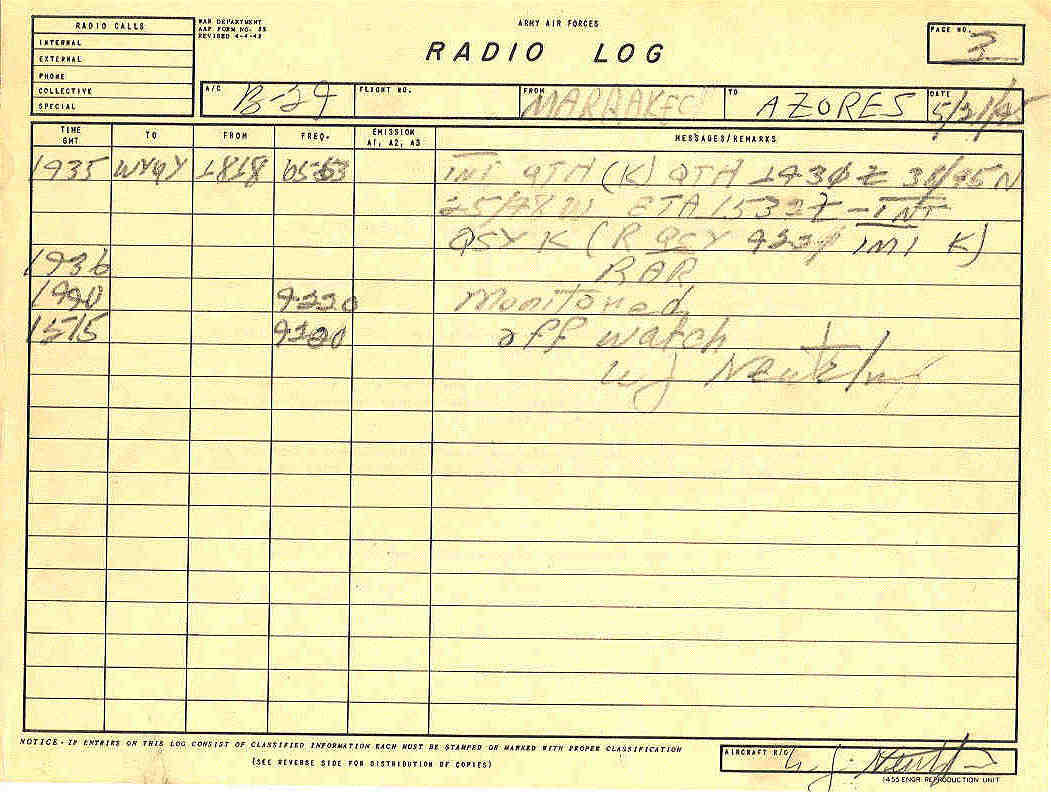 RADIO CALLS
INTERNAL
EXTERNAL
PHONE
COLLECTIVE
SPECIAL
WAR DEPARTMENT
AAF FORM NO. 35
REVISED 4-4-42
ARMY AIR FORCES
RADIO LOG
PAGE NO. 3
A/C B-29 FLIGHT NO. FROM MARRAKECH TO AZORES DATE 5/21/45
TIME GMT TO FROM FREQ. EMISSION A1, A2, A3 MESSAGES/REMARKS
1935 WYQY 1818 INT QTH (K) QTH 1430Z N
ETA 1532Z - INT
QSY K (R QSY IMI K)
1936 RAR
1440 9220 Monitored
1515 off watch
W J
NOTICE - IF ENTRIES ON THIS LOG CONSIST OF CLASSIFIED INFORMATION EACH MUST BE STAMPED OR MARKED WITH PROPER CLASSIFICATION
(SEE REVERSE SIDE FOR DISTRIBUTION OF COPIES)
AIRCRAFT R/O W. J.
1455 ENGR REPRODUCTION UNIT